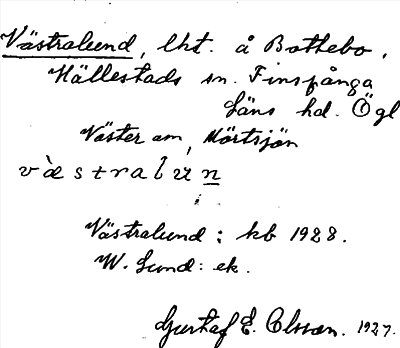 Västralund, lht. å Bottebo,
Hällestads sn. Finspånga
Läns hd. Ögl
Väster om Mörtsjön
væ̀stralun
Västralund: kb 1928.
W. Lund: ek.
Gustaf E. Olsson. 1927.